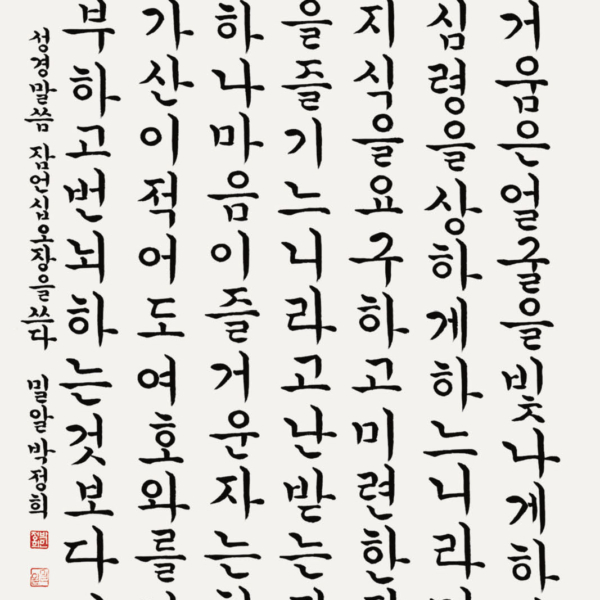 거움은얼굴을빛나게하
심령을상하게하느니라
지식을요구하고미련한
을즐기느니라고난받는
하나마음이즐거운자는
가산이적어도여호와를
부하고번뇌하는것보다
성경말씀 잠언십오장을쓰다 밀알박정희